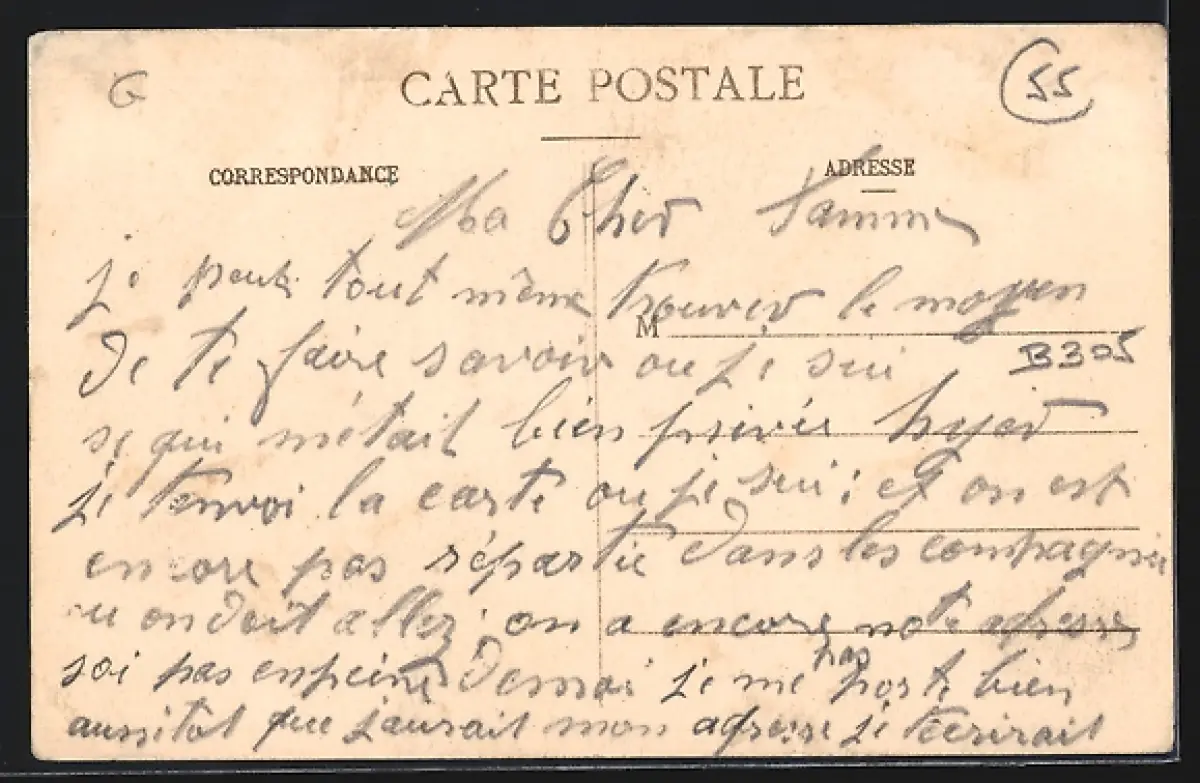 G
CARTE POSTALE
55
CORRESPONDANCE
ADRESSE
Ma Cher famme
je peut tout même trouver le moyen
M
de te faire savoir ou je sui
B305
se qui m'était bien privée hyer
je t'envoi la carte ou je sui; et on est
encore pas répartie dans les compagnie
ou on doit allez; on a encore note adresse
pas
soi pas enpeine de moi je me porte bien
aussitôt que j'aurait mon adresse je t'ecrirait